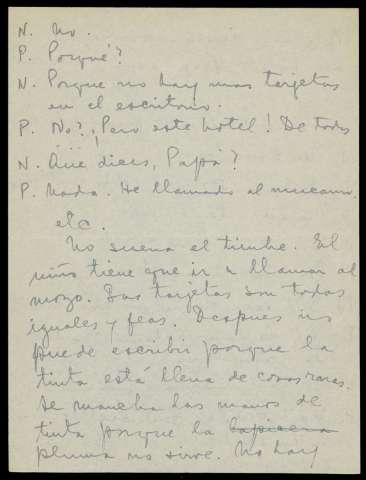 N. No.
P. Porqué?
N. Porque no hay mas tarjetas
en el escritorio.
P. No? ¡Pero este hotel! De todos
N. Qué dices, Papá?
P. Nada. He llamado al mucamo.
etc.
No suena el timbre. El
niño tiene que ir a llamar al
mozo. Las tarjetas son todas
iguales y feas. Después no
puede escribir porque la
tinta está llena de cosas raras.
Se mancha las manos de
tinta porque la lapicera
pluma no sirve. No hay